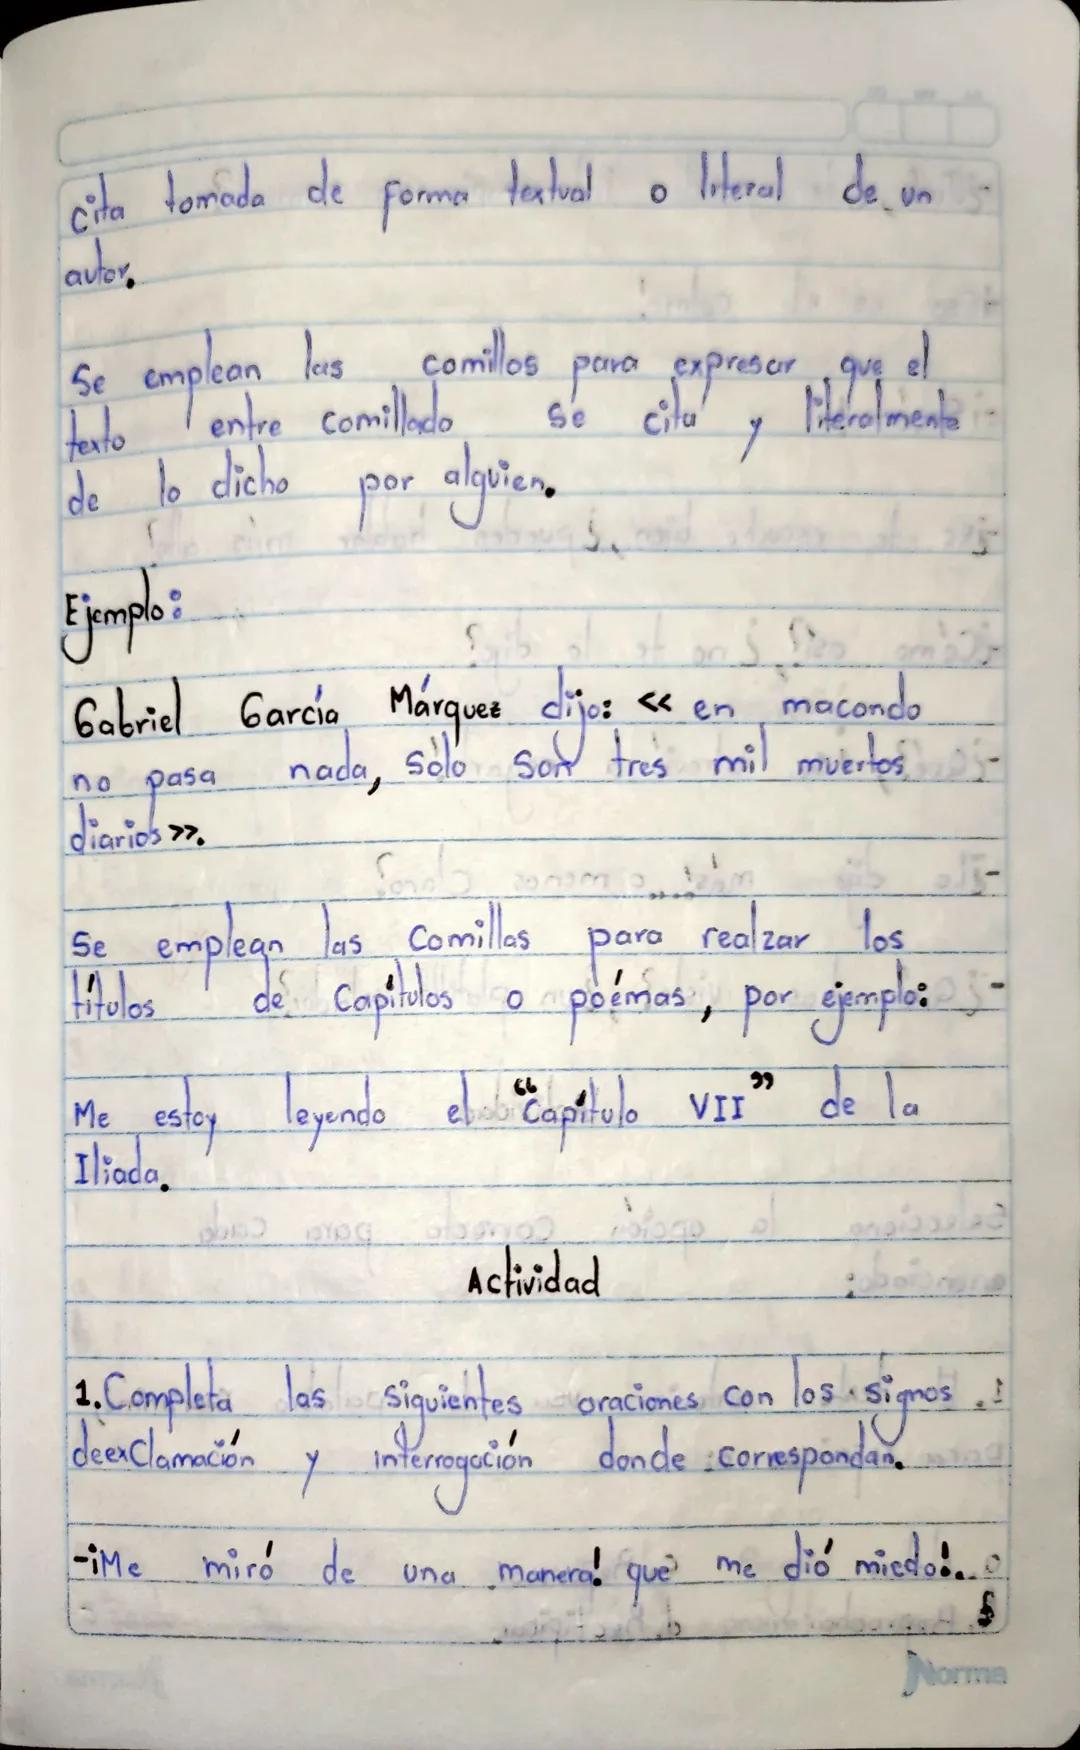 cita tomada de forma textual o literal de un
autor.
Se emplean las comillos para expresar que el
texto entre comillado se cita y literalmente
de lo dicho por alguien.
Ejemplo:
Gabriel García Márquez dijo: << en macondo
no pasa nada, sólo son tres mil muertos
diarios >>.
Se emplean las Comillas para realzar los
títulos de Capítulos o poémas, por ejemplo:
Me estoy leyendo el "Capítulo VII" de la
Iliada.
Actividad
1. Completa las siguientes oraciones con los signos
de exClamación y interrogación donde correspondan.
-¡Me miró de una manera! que me dió miedo!.
5
Norma